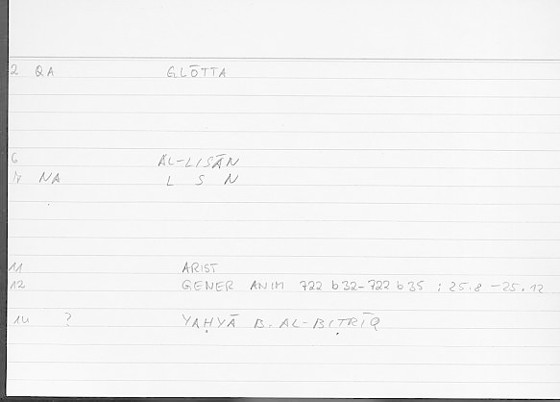 2 QA GLŌTTA
6 AL-LISĀN
7 NA L S N
11 ARIST
12 GENER ANIM 722 b 32-722 b 35 ; 25.8 - 25.12
14 ? YAḤYĀ B. AL-BIṬRĪQ